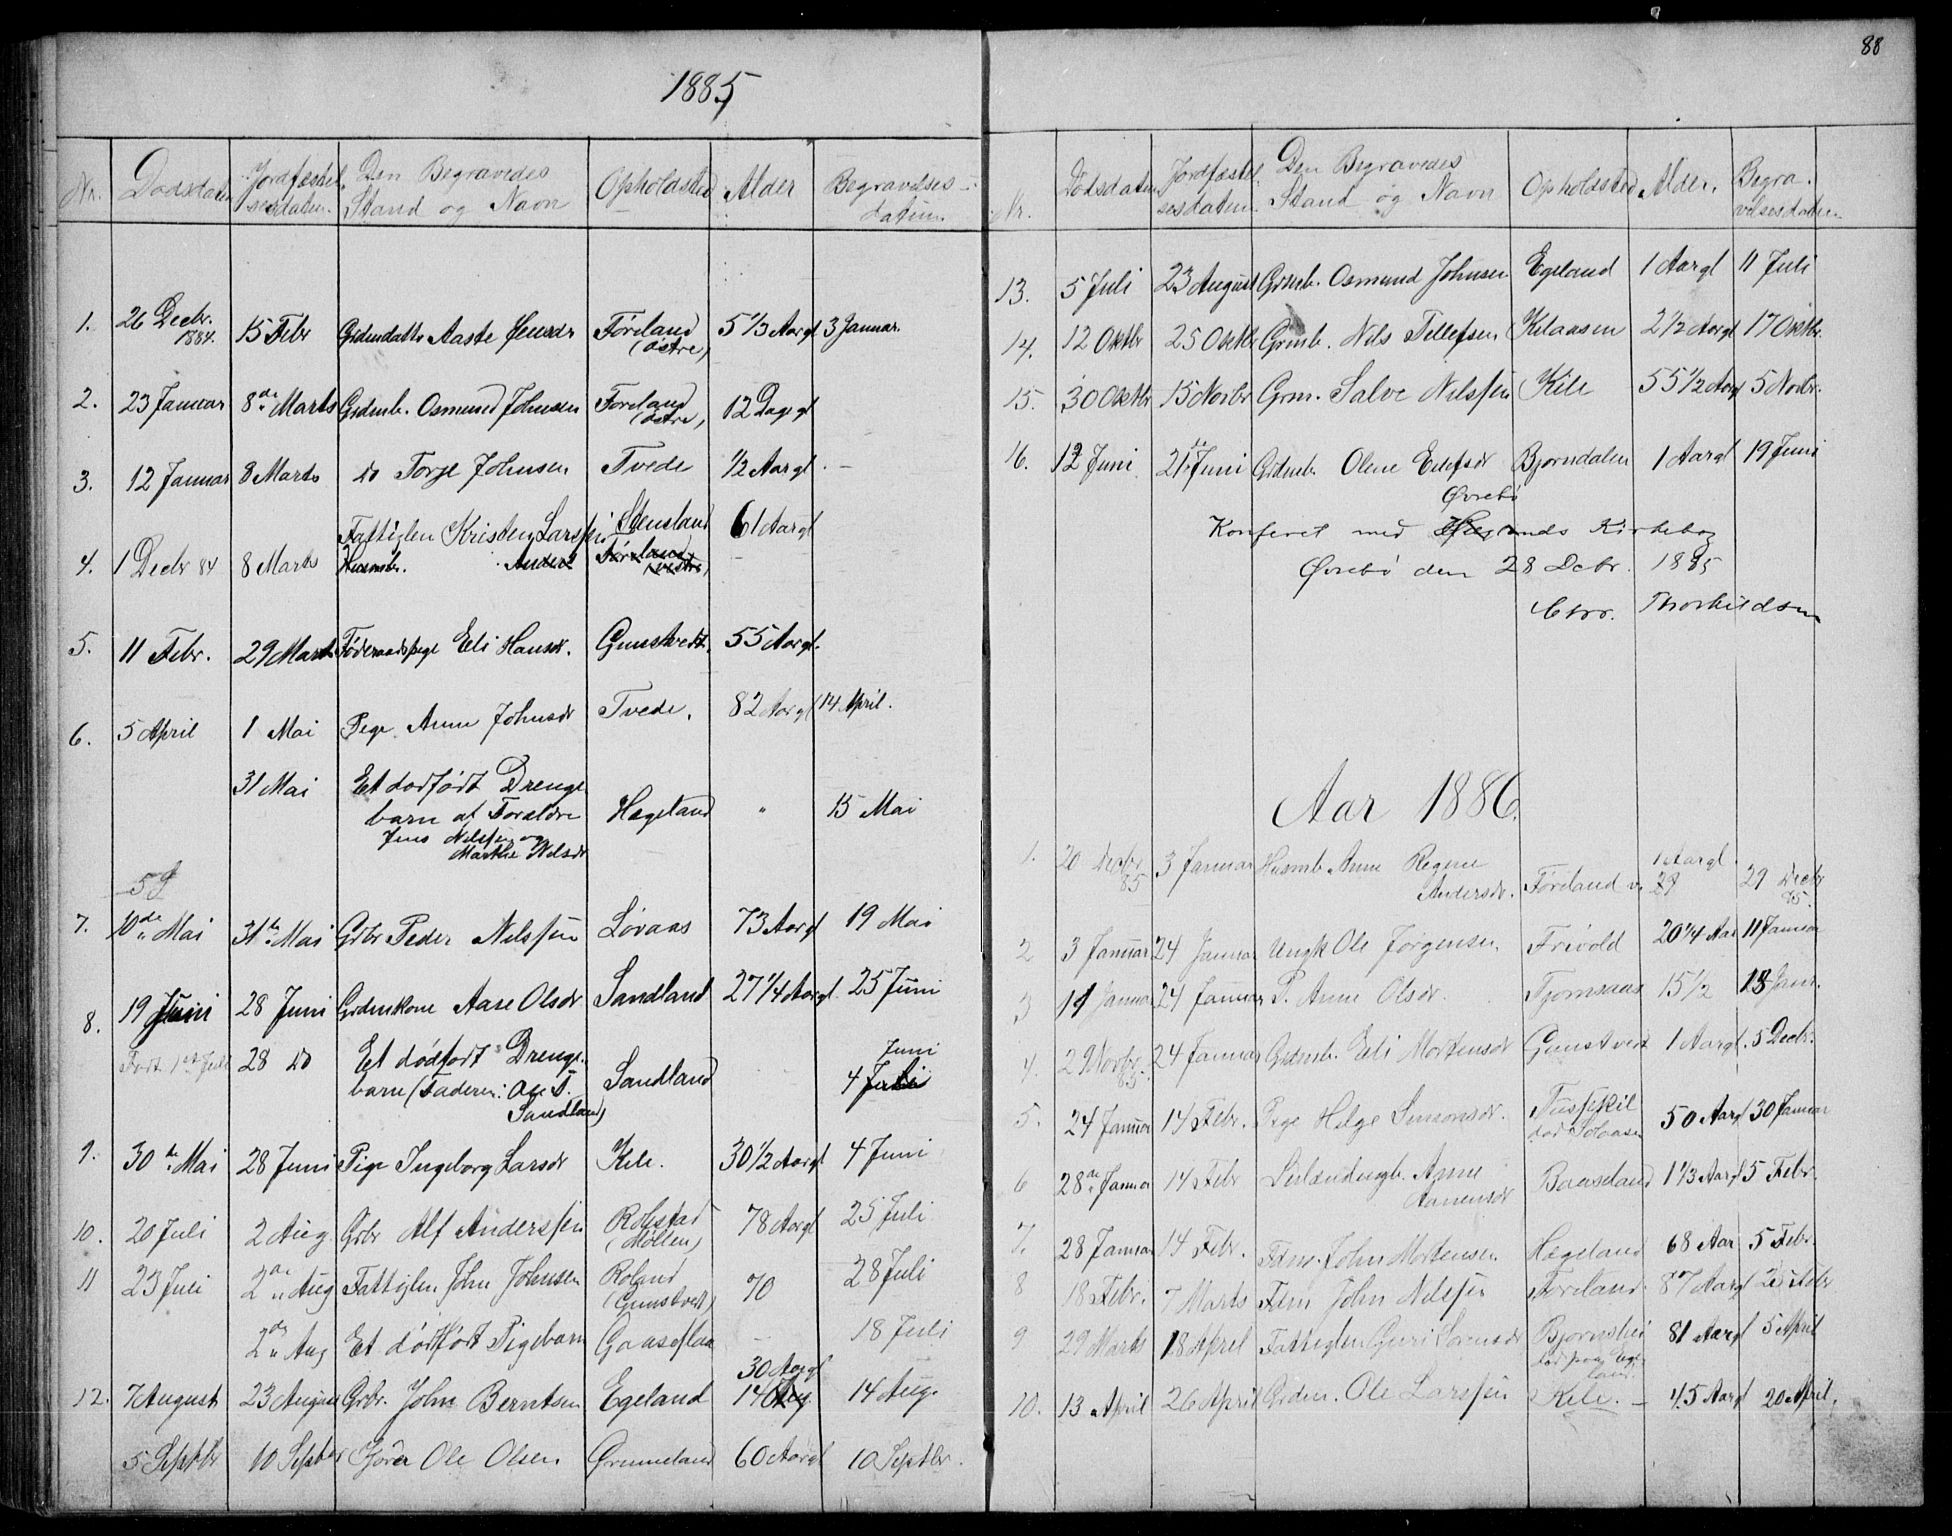 88
1885
Nr. Dødsdaten Jordfæstel- sesdaten. Den Begravedes Stand og Navn Opholdsted Alder Begravelses- datum
1. 26 Decbr. 1884. 15 Febr Aaste Førland (østre) 5 1/3 Aargl 3 Januar.
2. 23 Januar 8de Marts Grdmb. Osmund Johnsen Førland (østre) 12 Dage gl
3. 12 Januar 8 Marts do Torje Johnsen Tvede 1/2 Aargl. –
Fattiglem Kristen Larssen Stensland 61 Aargl
4. 1 Decbr 84 8 Marts Husmbr. Anders Førland (vestre) –
5. 11 Febr. 29 Marts Føderaadspige Eli Hansdr. Gunstvedt. 55 Aargl.
6. 5 April 1 Mai Pige Anne Johnsdr Tvede. 82 Aargl 14 April.
31 Mai Et dødfødt Drenge
barn af Forældre Hægeland " 15 Mai
Jens Nilssen og
Marthe Nilsdr
7. 10de Mai 31te Mai Grbr Peder Nilssen Løvaas 73 Aargl 19 Mai
8. 19 Juni 28 Juni Grdmkone Aase Olsdr Sandland 27 1/4 Aargl. 25 Juni
Født 1st Juli 28 do Et dødfødt Drenge- Juni
barn (Faderen: Ole T. Sandland 4 Juli
Sandland)
9. 30te Mai 28 Juni Pige Ingeborg Larsdr Kile. 30 1/2 Aargl 4 Juni
10. 20 Juli 2 Aug Grbr Alf Anderssen Robstad (Møllen) 78 Aargl 25 Juli
11 23 Juli 2den Aug Fattiglem John Johnsen Roland (Gunstvedt) 70 28 Juli
2den Aug Et dødfødt Pigebarn Gaaseflaa – 18 Juli
30 Aargl
12. 7 August 23 August Grbr. John Berntsen Egeland 14 Aug. 14 Aug.
5 Septbr 10 Septbr Ole Olsen Grundeland 60 Aargl 10 Septbr.
Nr. Dødsdaten Jordfæstel- sesdatum. Den Begravedes Stand og Navn Opholdsted Alder. Begra- velsesdatum
13. 5 Juli 23 August Grdmb. Osmund Johnsen Egeland 1 Aargl 11 Juli
14. 12 Oktbr 25 Oktbr Grmb. Nils Tellefsen Kilaasen 2 1/2 Aargl 17 Oktbr.
15. 30 Oktbr 15 Novbr Grm. Salve Nilssen Kile 55 1/2 Aargl 5 Novbr.
16. 12 Juni 21de Juni Grdmb. Olene Ellefsdr Bjørndalen 1 Aargl 19 Juni
Øvrebø
Konferet med Hægelands Kirkebog
Øvrebø den 28 Dcbr. 1885
Chrr. Thorkildsen
Aar 1886.
1. 20 Decbr 85 3 Januar Husmb. Anne Regine Andersdr. Førland v. 1 Aargl. 29 29 Decbr 85.
2 3 Januar 24 Januar Ungk Ole Jørgensen Frivold 20 1/4 Aar 11 Januar
3 11 Januar 24 Januar P. Anne Olsdr. Tjomsaas 15 1/2 18 Jan.
4. 29 Novbr. 85. 24 Januar Grdmb. Eli Mortensdr Gunstvedt 1 Aargl. 5 Decbr.
5. 24 Januar 14 Febr. Pige Helge Simonsdr. 50 Aargl 30 Januar
6 28de Januar 14 Febr Anne Aanensdr Baaseland 1 1/3 Aargl 5 Febr.
7. 28 Januar 14 Febr. Fdm. John Mortensen Hægeland 68 Aar 5 Febr.
8 18 Febr. 7 Marts Fdm John Nilssen Førland. 87 Aargl 25 Febr
9 29 Marts 18 April Fattiglem Guri Sørensdr Bjørnshei død paa Ege- land. 81 Aargl 5 April
10. 13 April 26 April Grdm. Ole Larssen Kile. – 45 Aargl 20 April.